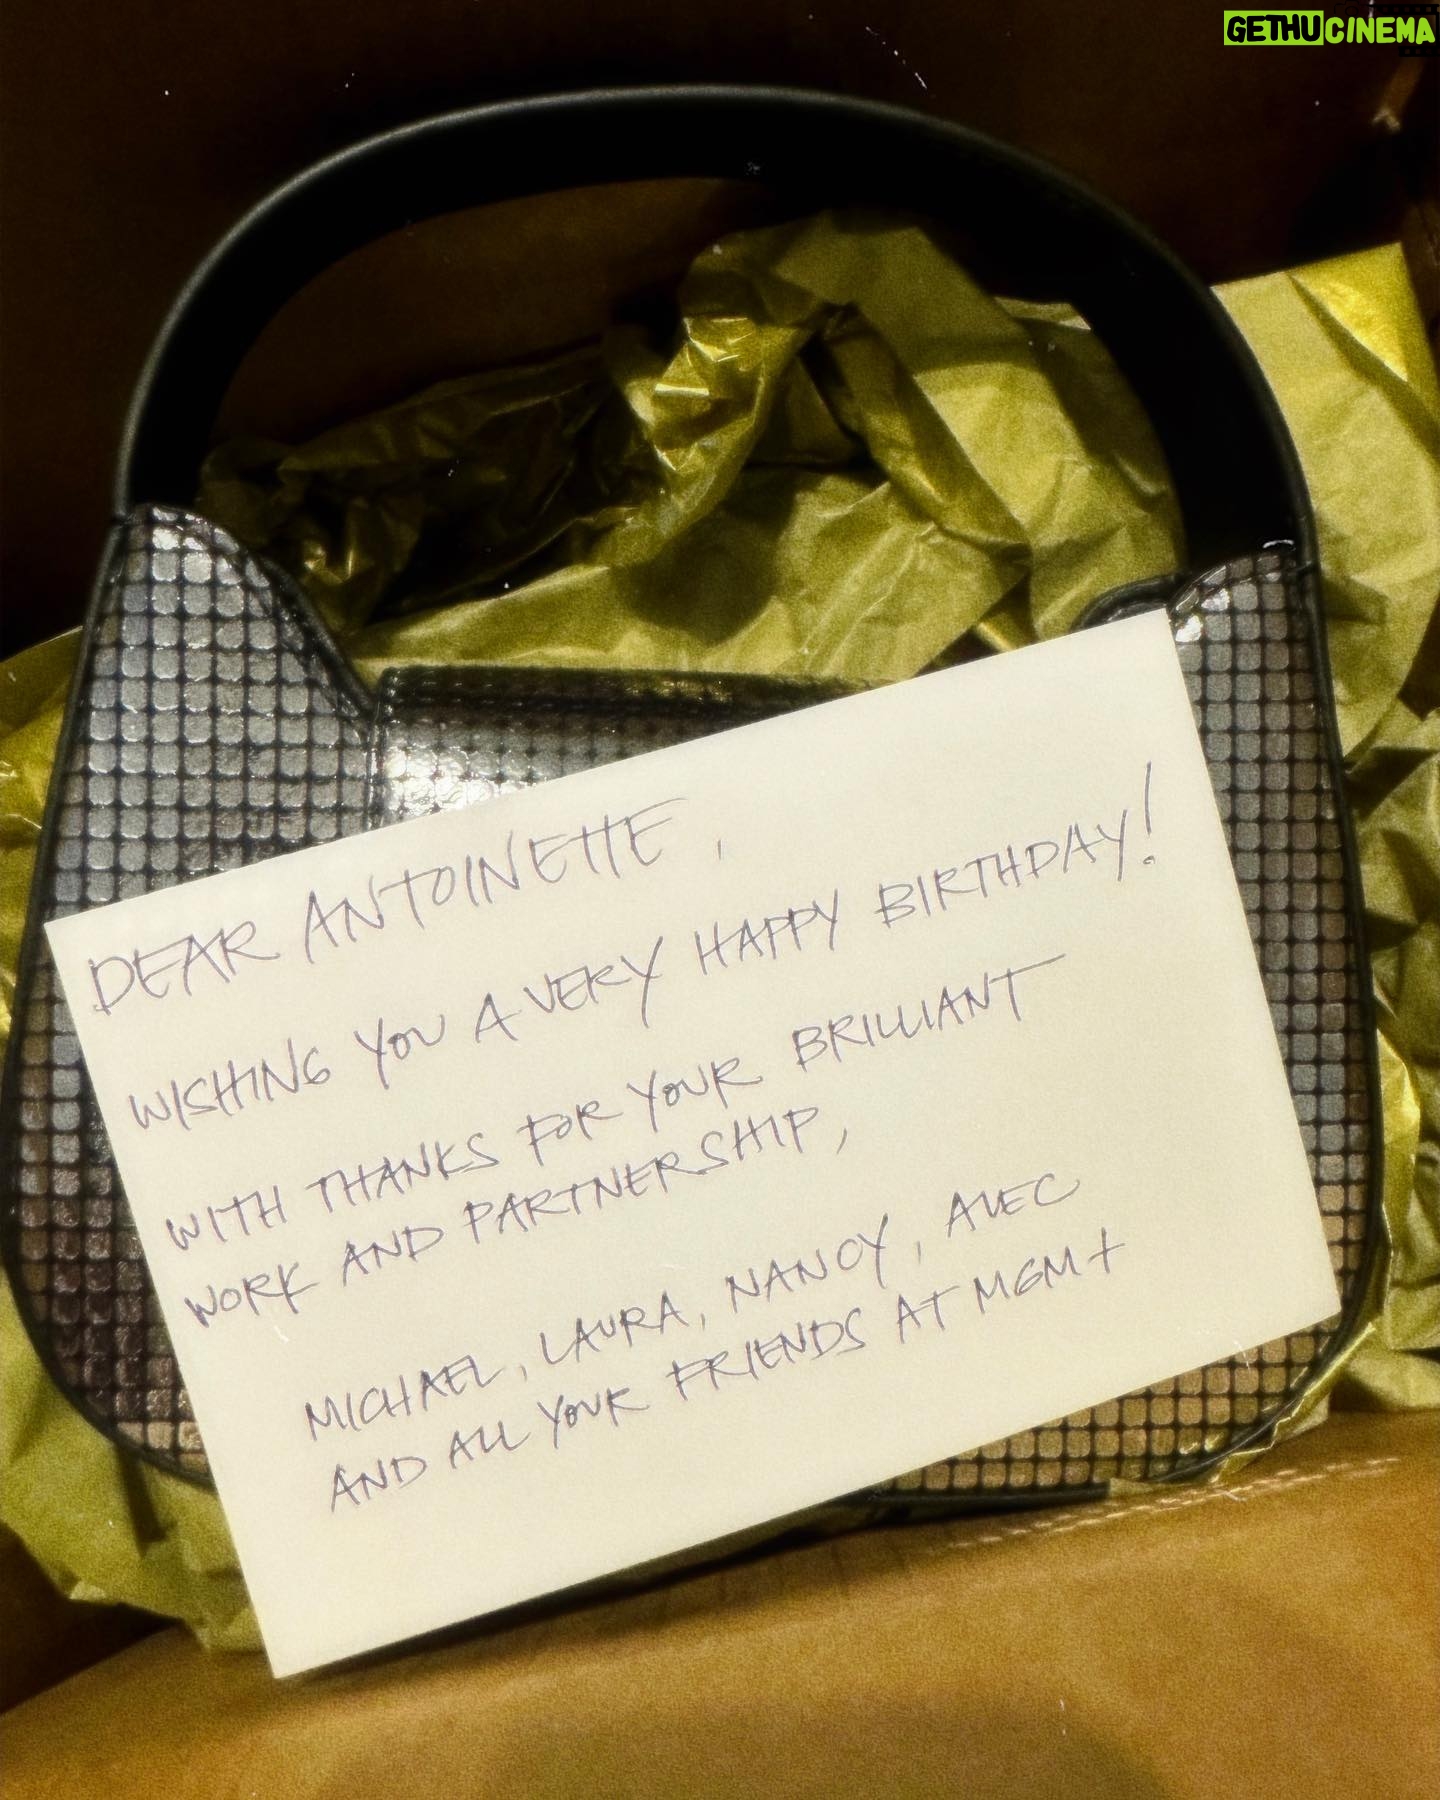 GETHUCINEMA
DEAR ANTOINETTE,
WISHING YOU A VERY HAPPY BIRTHDAY!
WITH THANKS FOR YOUR BRILLIANT
WORK AND PARTNERSHIP,
MICHAEL, LAURA, NANCY, ALEC
AND ALL YOUR FRIENDS AT MGM+